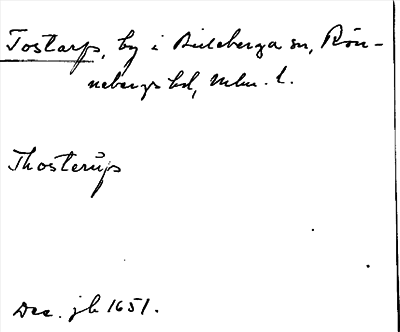 Tostarp, by i Billeberga sn, Rön-
nebergs hd, Mlm. l.
Thosterŭps
Dec. jb 1651.